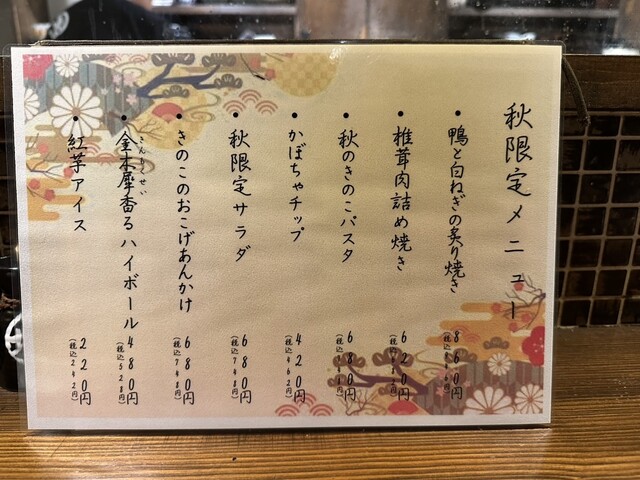 秋限定メニュー
・鴨と白ねぎの炙り焼き 860円
(税込946円)
・椎茸肉詰め焼き 620円
(税込682円)
・秋のきのこパスタ 680円
(税込748円)
・かぼちゃチップ 420円
(税込462円)
・秋限定サラダ 680円
(税込748円)
・きのこのおこげあんかけ 680円
(税込748円)
きんもくせい
・金木犀香るハイボール 480円
(税込528円)
・紅芋アイス 220円
(税込242円)